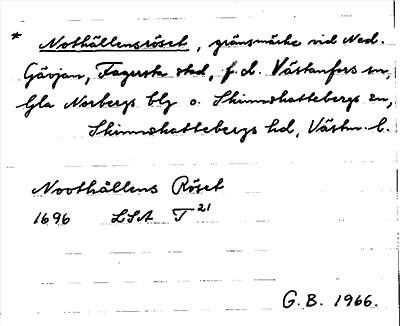 * Nothällensröset, gränsmärke vid Ned.
Gävjan, Fagersta stad, f. d. Västanfors sn,
Gla Norbergs blg o. Skinnskattebergs sn,
Skinnskattebergs hd, Västm. l.
Noothällens Röset
1696 LSA T 21
G. B. 1966.